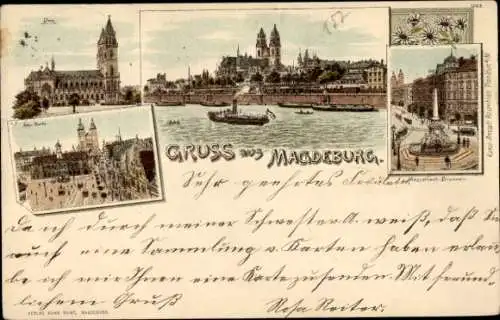 Dom
152
GRUSS AUS MAGDEBURG.
Hasselbach-Brunnen
Sehr geehrtes Fräulein
Da ich durch meiner Schwester A. weiß, daß Sie
auch eine Sammlung v. Karten haben erlau-
be ich mir Ihnen eine Karte zusenden. Mit freund-
lichem Gruß Rosa Reiter.